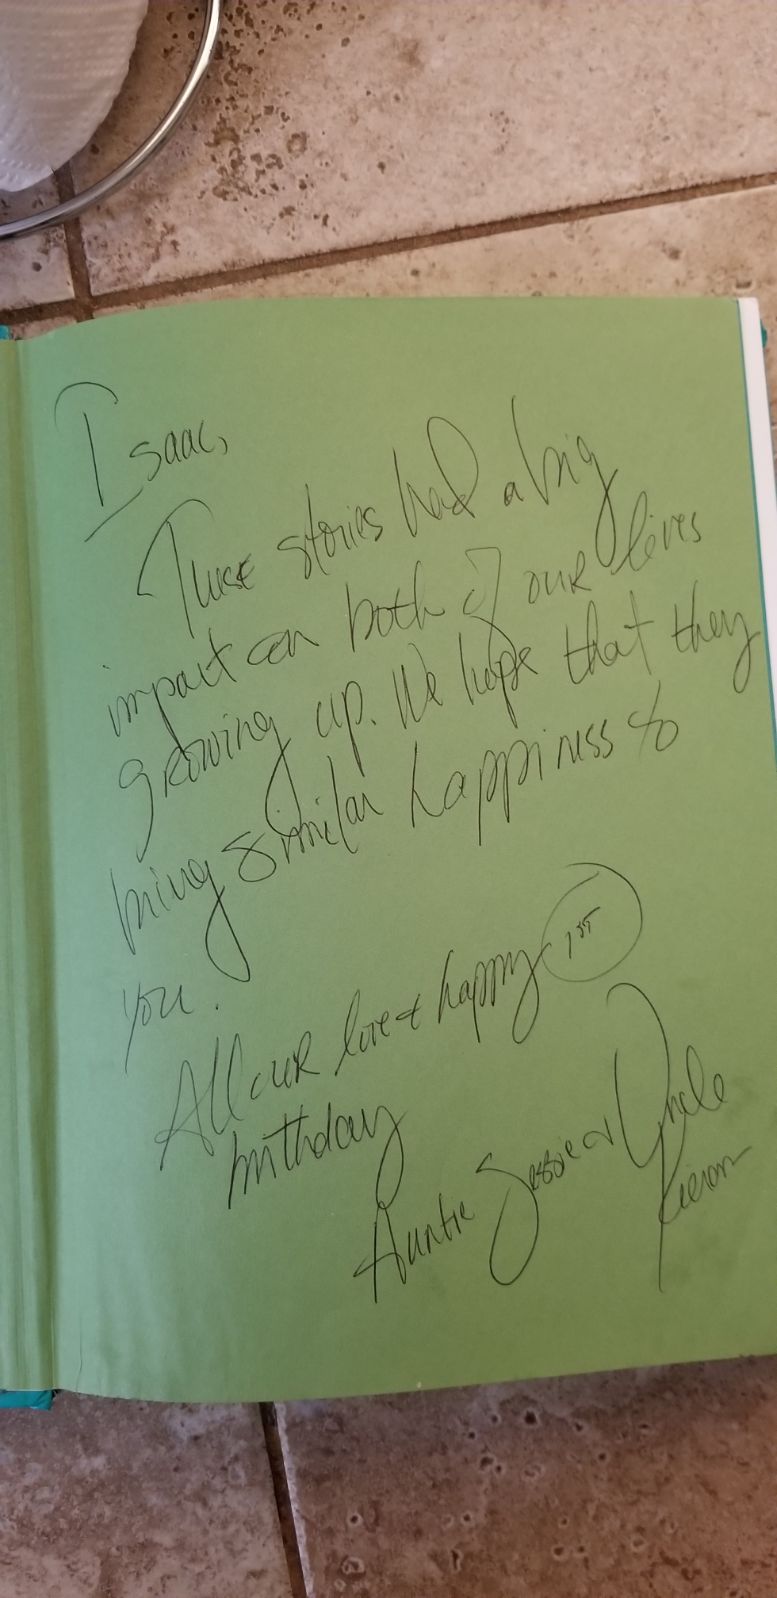 Isaac,
These stories had a big
impact on both of our lives
growing up. We hope that they
bring similar happiness to
you.
All our love & happy 1st
birthday
Auntie Jessie & Uncle
Kieran